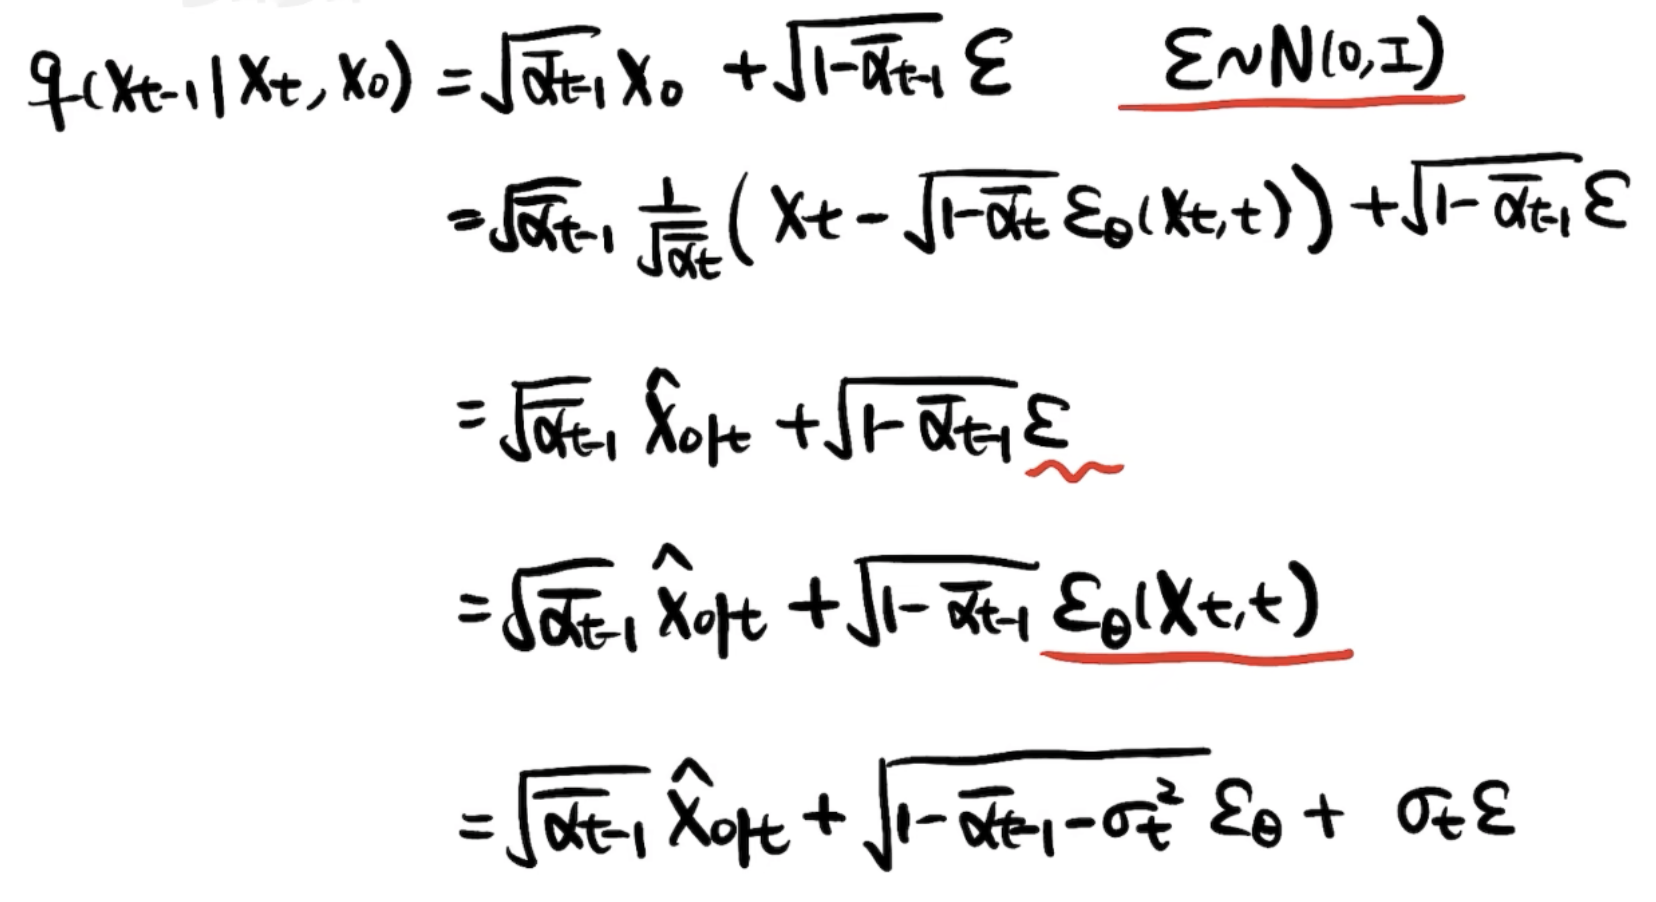 q(Xt-1|Xt, X0) = √ᾱt-1 X0 + √1-ᾱt-1 ε    ε~N(0,I)
= √ᾱt-1 1/√ᾱt ( Xt - √1-ᾱt εθ(Xt,t) ) + √1-ᾱt-1 ε
= √ᾱt-1 X̂0|t + √1-ᾱt-1 ε
= √ᾱt-1 X̂0|t + √1-ᾱt-1 εθ(Xt,t)
= √ᾱt-1 X̂0|t + √1-ᾱt-1-σt² εθ + σtε